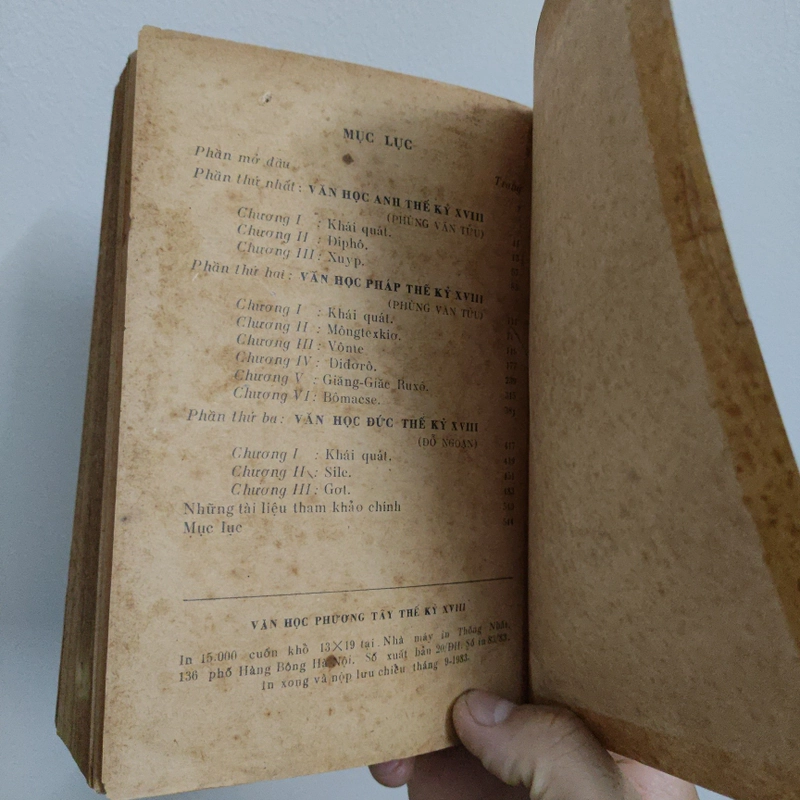 MỤC LỤC
Trang
Phần mở đầu
Phần thứ nhất: VĂN HỌC ANH THẾ KỶ XVIII
(PHÙNG VĂN TỬU)
Chương I : Khái quát.
Chương II : Điphô.
Chương III : Xuyp.
Phần thứ hai: VĂN HỌC PHÁP THẾ KỶ XVIII
(PHÙNG VĂN TỬU)
Chương I : Khái quát.
Chương II : Môngtexkiơ.
Chương III : Vônte
Chương IV : Điđơrô.
Chương V : Giăng-Giắc Ruxô.
Chương VI : Bômacse.
Phần thứ ba: VĂN HỌC ĐỨC THẾ KỶ XVIII
(ĐỖ NGOẠN)
Chương I : Khái quát.
Chương II : Sile.
Chương III : Gơt.
Những tài liệu tham khảo chính
Mục lục
VĂN HỌC PHƯƠNG TÂY THẾ KỶ XVIII
In 15.000 cuốn khổ 13×19 tại Nhà máy in Thống Nhất,
136 phố Hàng Bông Hà Nội. Số xuất bản 20/ĐH. Số in 83/83.
In xong và nộp lưu chiểu tháng 9-1983.